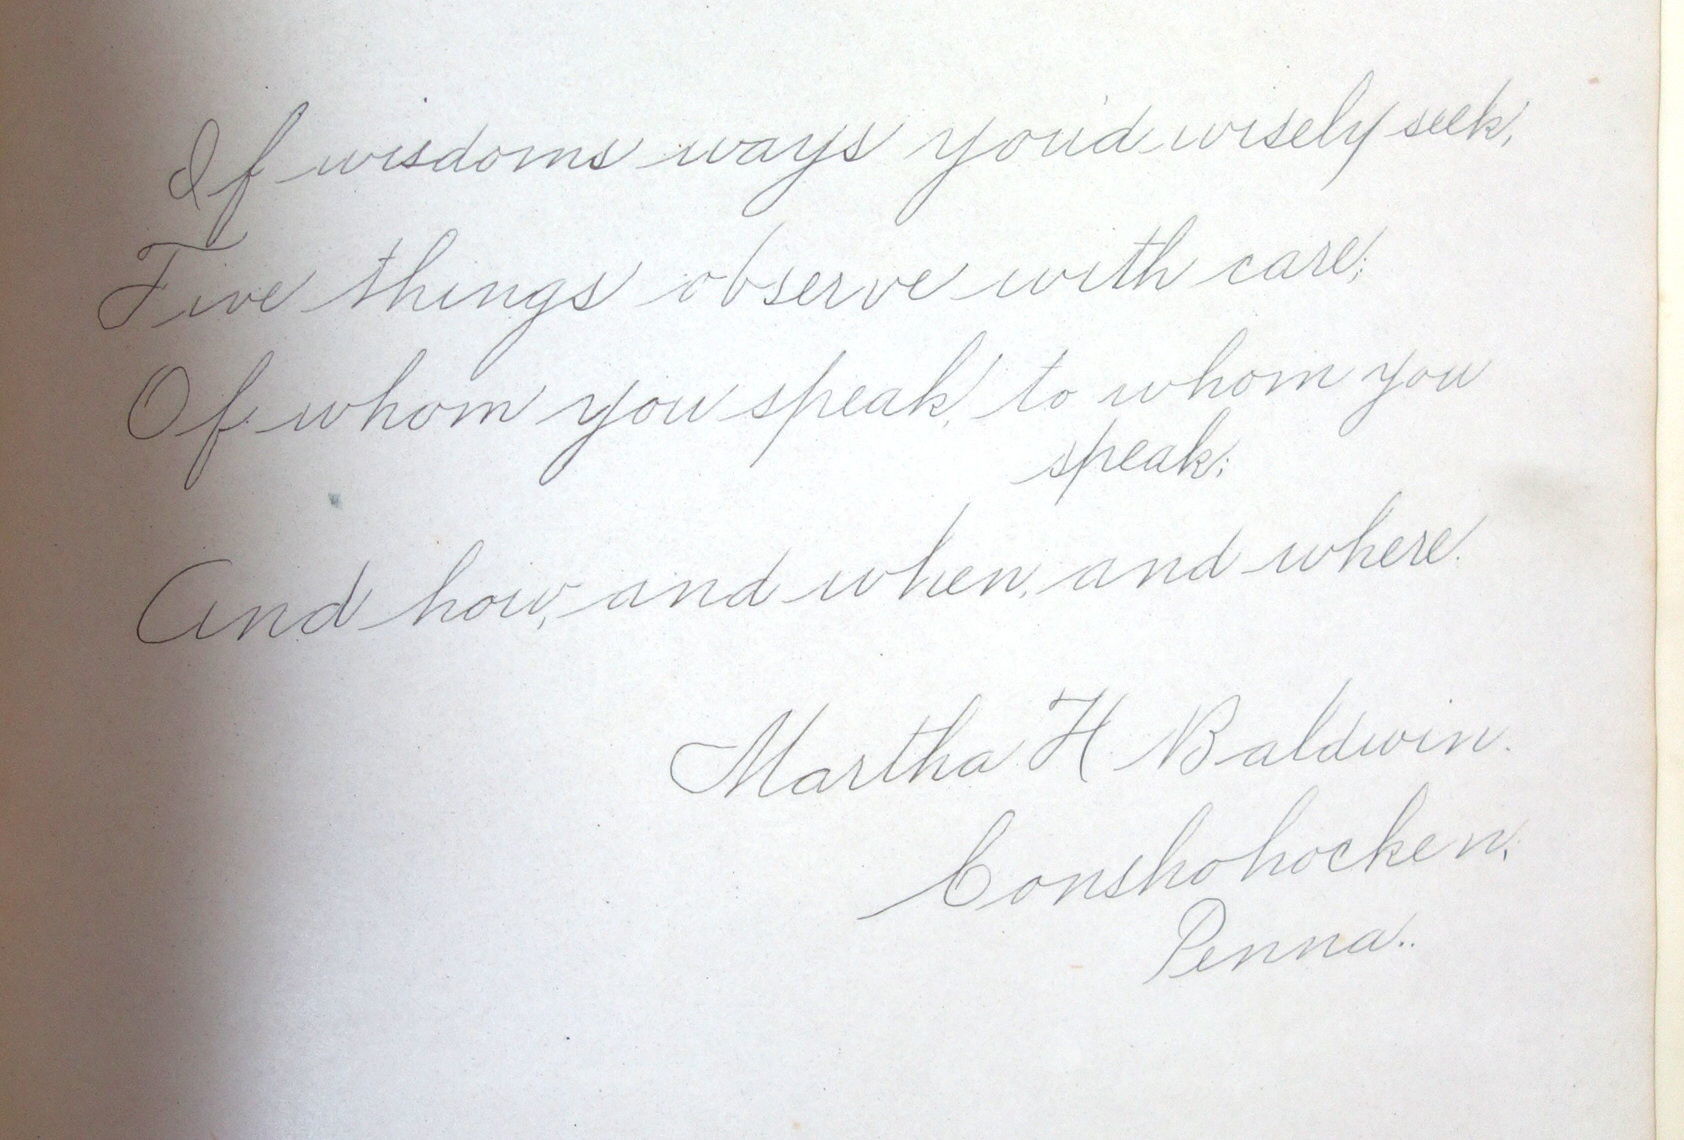 If wisdoms ways you'd wisely seek,
Five things observe with care;
Of whom you speak, to whom you
speak;
And how, and when, and where.
Martha H Baldwin.
Conshohocken,
Penna..